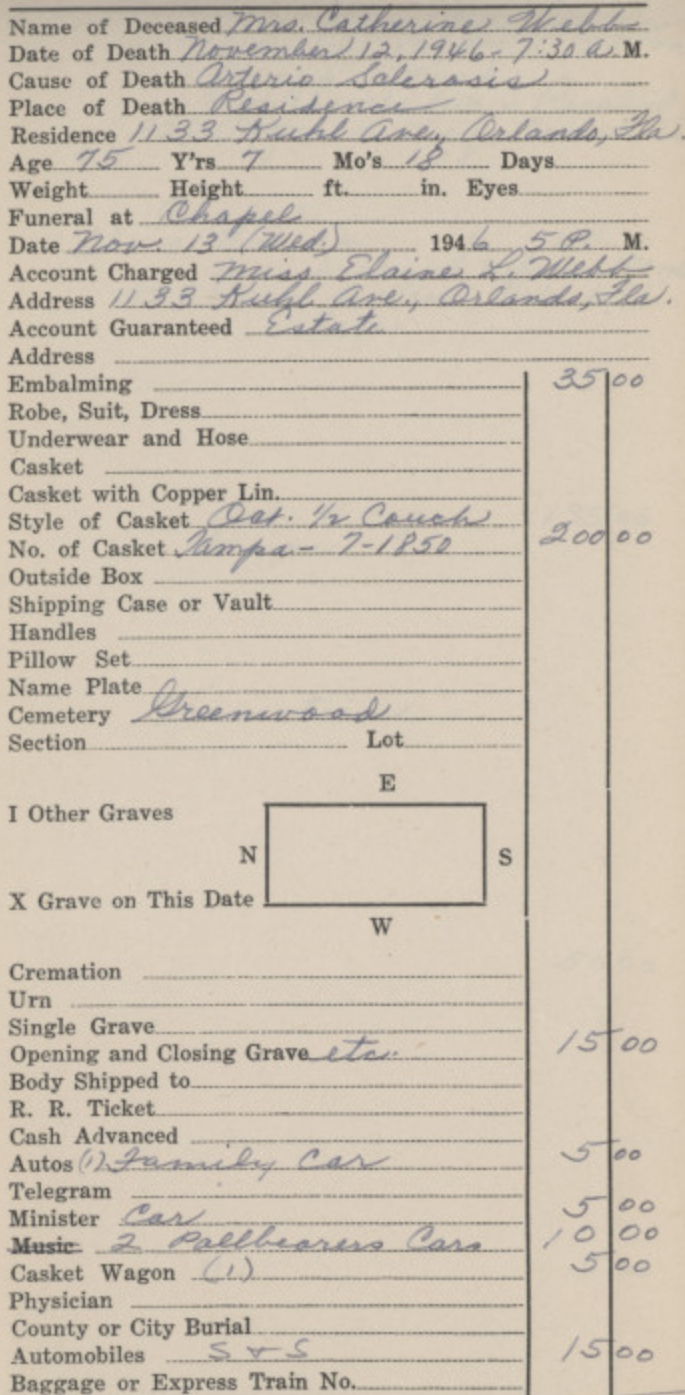 Name of Deceased Mrs. Catherine Webb
Date of Death November 12, 1946 - 7:30 a. M.
Cause of Death Arterio Sclerosis
Place of Death Residence
Residence 1133 Kuhl Ave., Orlando, Fla.
Age 75 Y'rs 7 Mo's 18 Days
Weight Height ft. in. Eyes
Funeral at Chapel
Date Nov. 13 (Wed.) 1946 5 P. M.
Account Charged Miss Elaine L. Webb
Address 1133 Kuhl Ave., Orlando, Fla.
Account Guaranteed Estate
Address
Embalming 35 00
Robe, Suit, Dress
Underwear and Hose
Casket
Casket with Copper Lin.
Style of Casket Oct. 1/2 Couch
No. of Casket Tampa - 7-1850 200 00
Outside Box
Shipping Case or Vault
Handles
Pillow Set
Name Plate
Cemetery Greenwood
Section Lot
E
I Other Graves
N S
X Grave on This Date
W
Cremation
Urn
Single Grave
Opening and Closing Grave etc. 15 00
Body Shipped to
R. R. Ticket
Cash Advanced
Autos (1) Family Car 5 00
Telegram
Minister Car 5 00
Music 2 Pallbearers Cars 10 00
Casket Wagon (1) 5 00
Physician
County or City Burial
Automobiles S & S 15 00
Baggage or Express Train No.